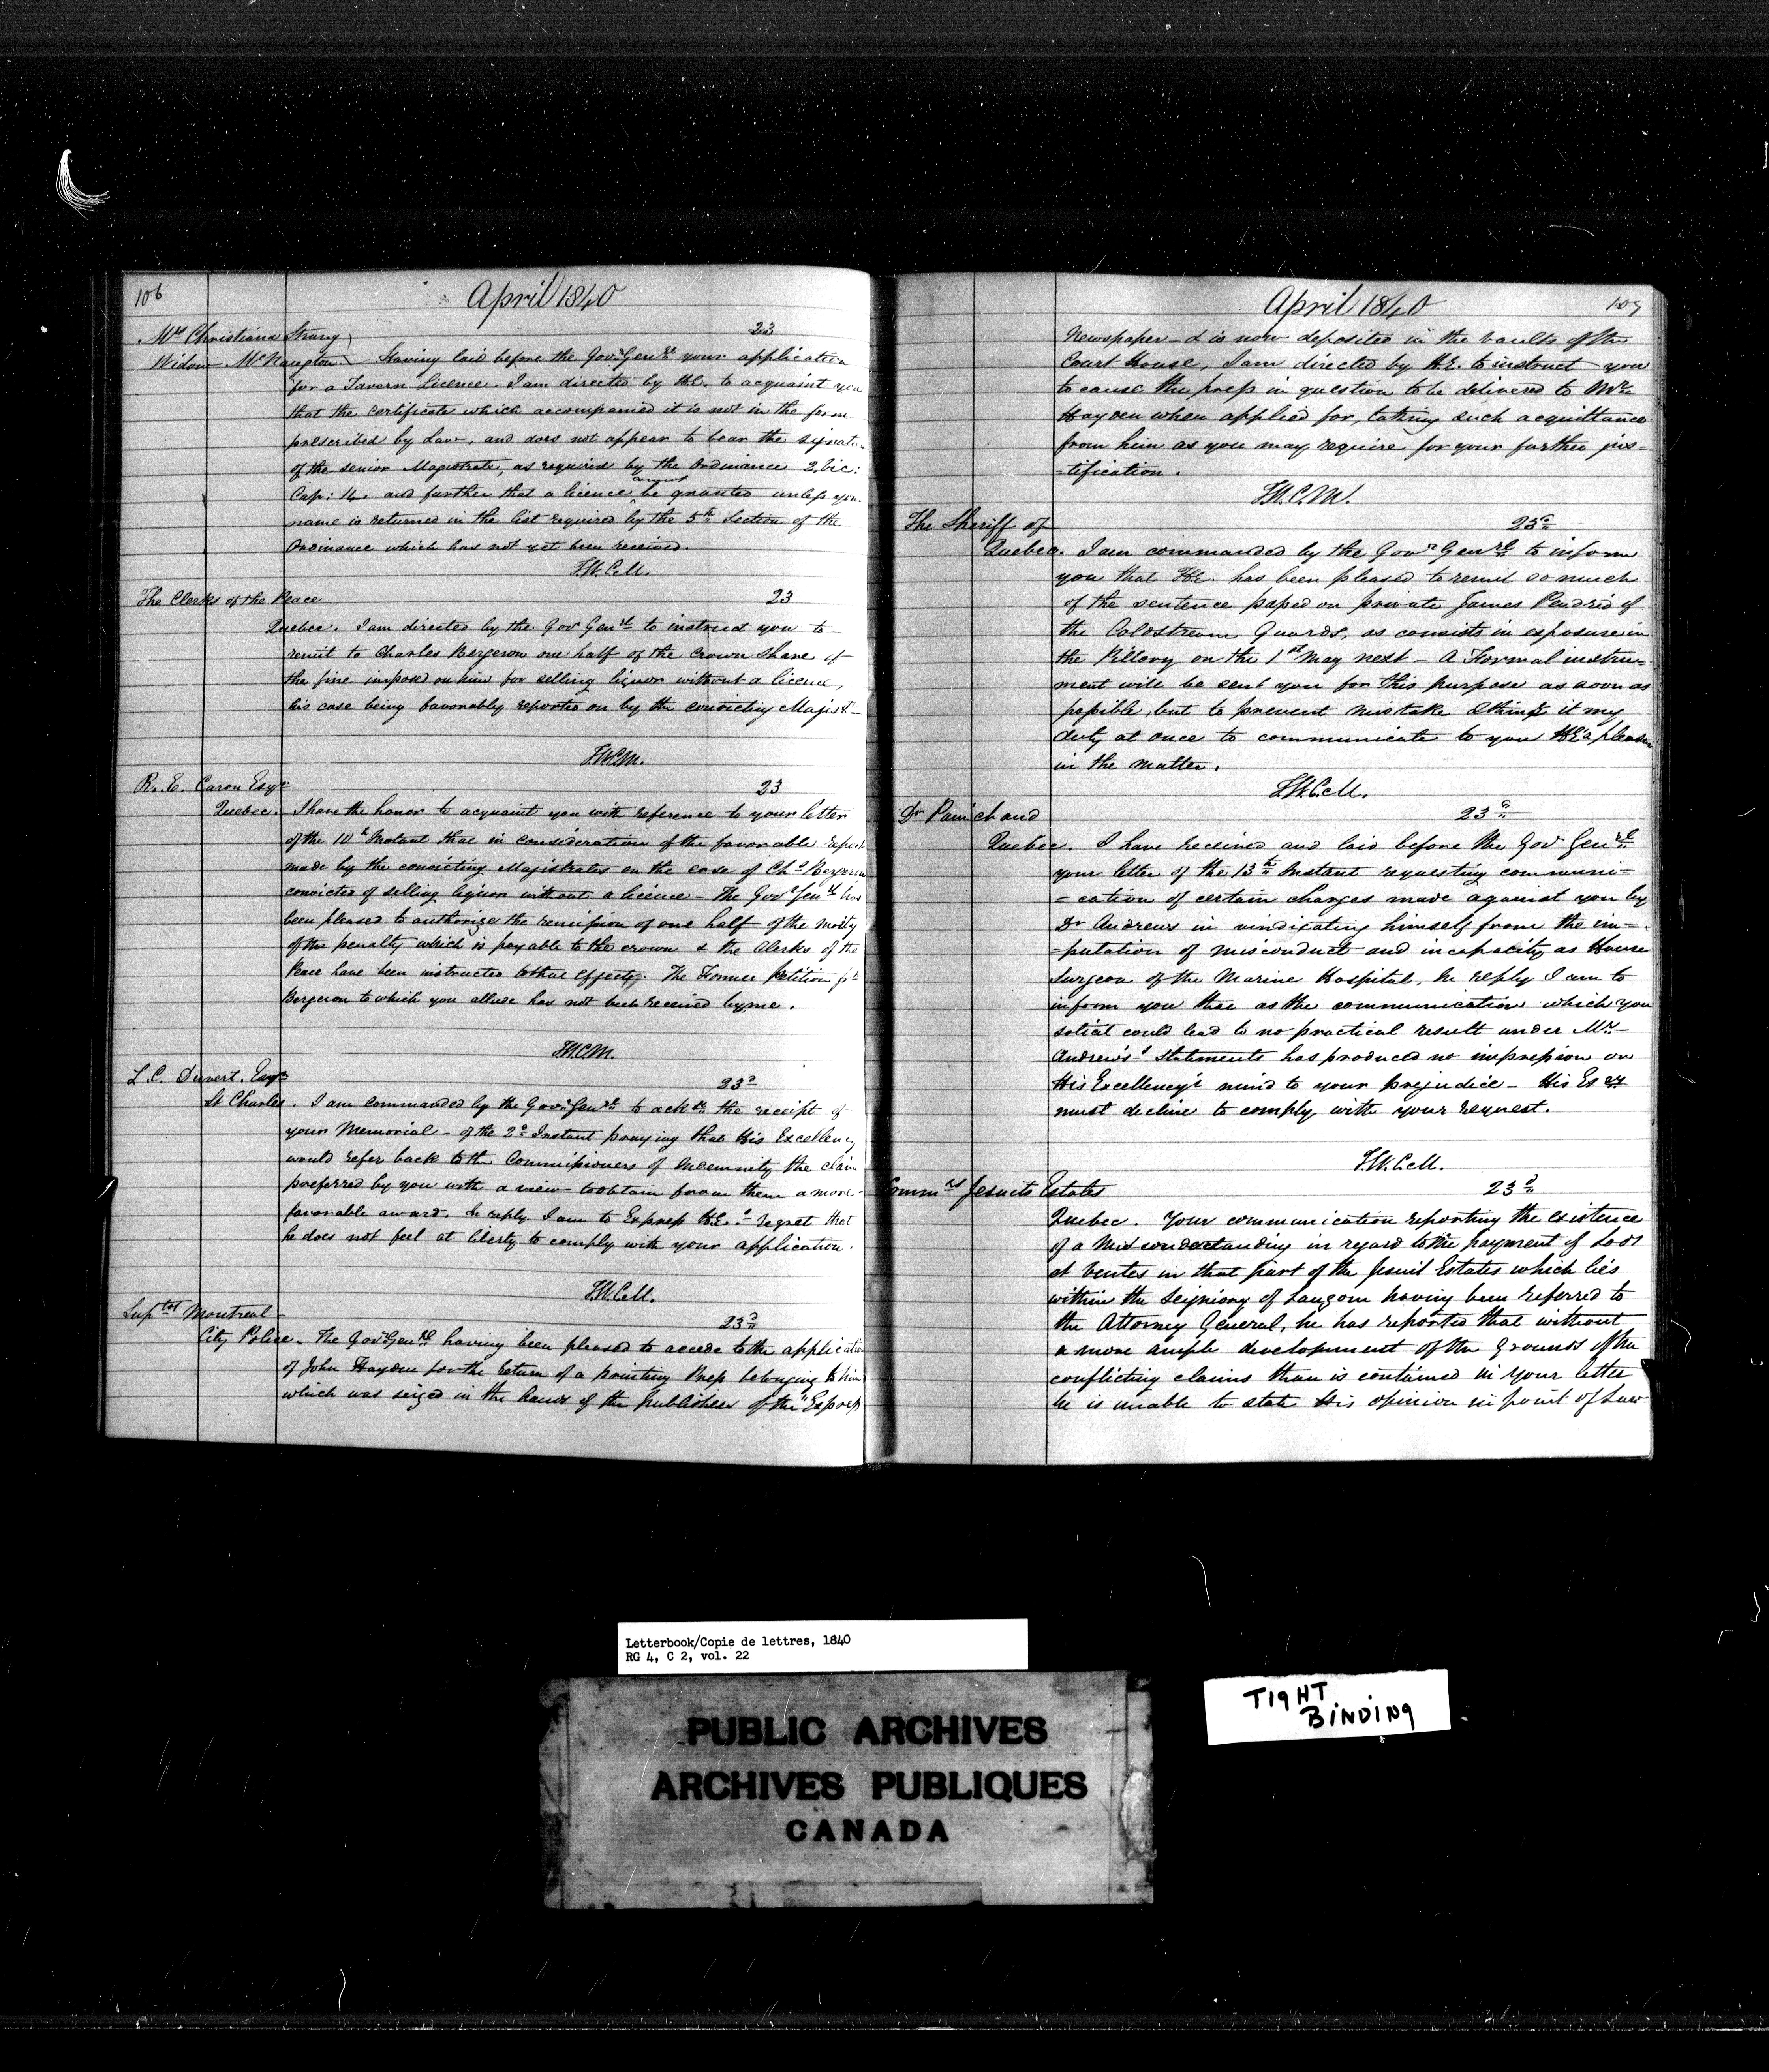 106
April 1840
Mrs Christiana Strang
23
Widow McNaugton Having laid before the Govr Genrl your application
for a Tavern Licence. I am directed by H.E. to acquaint you
that the certificate which accompanied it is not in the form
prescribed by Law, and does not appear to bear the signatu
of the senior Magistrate, as required by the Ordinance 2 Vic:
cannot
Cap: 14. and further that a licence be granted unless you
name is returned in the list required by the 5th Section of the
Ordinance which has not yet been received.
T.W.C.M.
The Clerks of the Peace
23
Quebec. I am directed by the Govr Genrl to instruct you to
remit to Charles Bergeron one half of the Crown share of
the fine imposed on him for selling liquor without a licence,
his case being favorably reported on by the convicting Magist
T.W.C.M.
R. E. Caron Esqr
23
Quebec. I have the honor to acquaint you with reference to your letter
of the 10th Instant that in consideration of the favorable report
made by the convicting Magistrates on the case of Chs Bergeron
convicted of selling liquor without a licence – The Govr Genrl has
been pleased to authorize the remission of one half of the moity
of the penalty which is payable to the crown & the Clerks of the
Peace have been instructed to that effect. The Former Petition fr
Bergeron to which you allude has not been received by me.
T.W.C.M.
L. C. Duvert. Esqr
23d
St Charles. I am commanded by the Govr Genrl to ackge the receipt of
your Memorial – of the 2d Instant praying that His Excellency
would refer back to the Commissioners of Indemnity the claim
preferred by you with a view to obtain from them a more
favorable award. In reply I am to Express H.E.s regret that
he does not feel at liberty to comply with your application.
T.W.C.M.
Suptdt Montreal
23d
City Police. The Govr Genrl having been pleased to accede to the applicatio
of John Hayden for the return of a printing Press belonging to him
which was seized in the hands of the publishers of the "Express
April 1840
107
Newspaper & is now deposited in the vaults of the
Court House, I am directed by H.E. to instruct you
to cause the press in question to be delivered to Mr
Hayden when applied for, taking such acquittance
from him as you may require for your further jus=
=tification.
T.W.C.M.
The Sheriff of
23d
Quebec. I am commanded by the Govr Genrl to inform
you that H.E. has been pleased to remit so much
of the sentence passed on private James Pendrid of
the Coldstream Guards, as consists in exposure in
the Pillory on the 1st May next – A Formal instru=
ment will be sent you for this purpose as soon as
possible, but to prevent mistake I think it my
duty at once to communicate to you H.E's pleasure
in the matter.
T.W.C.M.
Dr Painchaud
23d
Quebec. I have received and laid before the Govr Genrl
your letter of the 13th Instant requesting communi=
=cation of certain charges made against you by
Dr Andrews in vindicating himself from the im=
=putation of misconduct and incapacity as House
Surgeon of the Marine Hospital, In reply I am to
inform you that as the communication which you
solicit could lead to no practical result under Mr
Andrews's statements has produced no impression on
His Excellency's mind to your prejudice – His Excy
must decline to comply with your request.
T.W.C.M.
Commrs Jesuits Estates
23d
Quebec. Your communication reporting the existence
of a Misunderstanding in regard to the payment of Lods
et Ventes in that part of the Jesuit Estates which lies
within the Seigniory of Lauzon having been referred to
the Attorney General, he has reported that without
a more ample developement of the Grounds of the
conflicting claims than is contained in your letter
he is unable to state His opinion in point of Law
Letterbook/Copie de lettres, 1840
RG 4, C 2, vol. 22
PUBLIC ARCHIVES
ARCHIVES PUBLIQUES
CANADA
TIGHT
BINDING